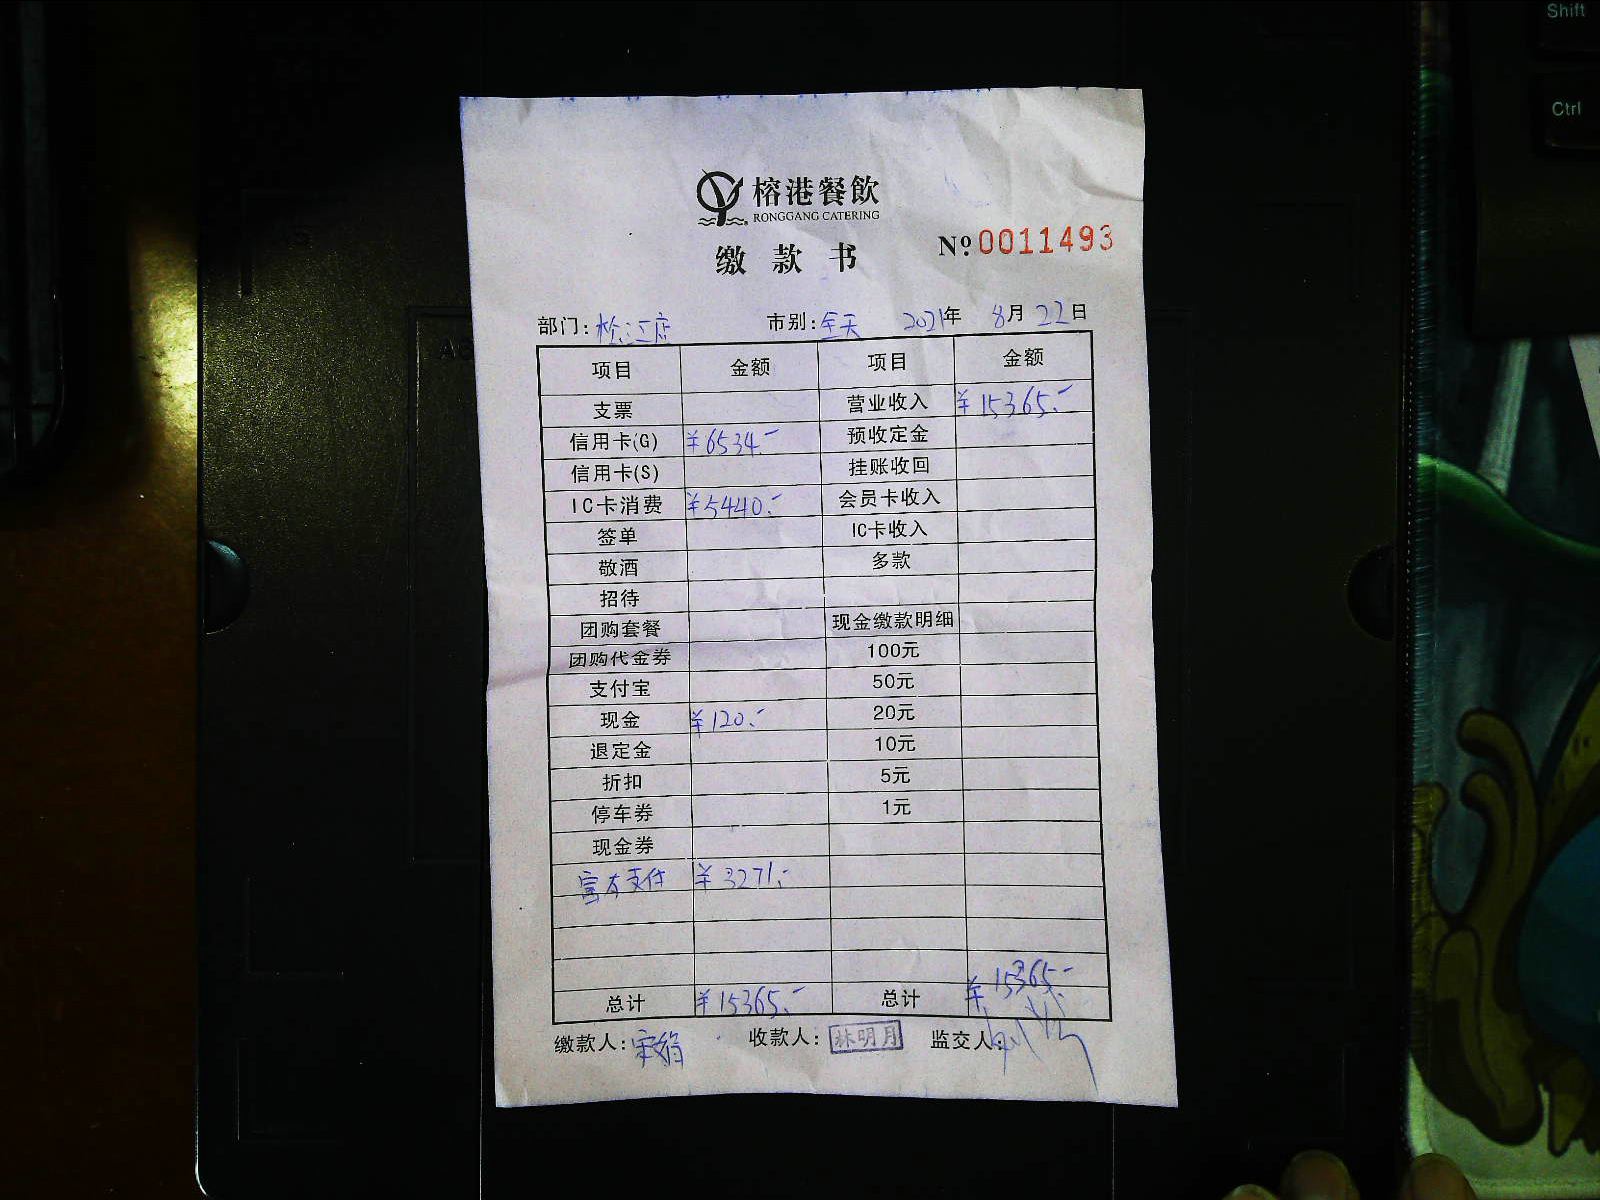 Shift
Ctrl
榕港餐飲
RONGGANG CATERING
缴款书
№ 0011493
部门: 松江店 市别: 全天 2021年 8月 22日
项目 金额 项目 金额
支票 营业收入 ¥15365.-
信用卡(G) ¥6534.- 预收定金
信用卡(S) 挂账收回
IC卡消费 ¥5440.- 会员卡收入
签单 IC卡收入
敬酒 多款
招待
团购套餐 现金缴款明细
团购代金券 100元
支付宝 50元
现金 ¥120.- 20元
退定金 10元
折扣 5元
停车券 1元
现金券
富友支付 ¥3271.-
总计 ¥15365.- 总计 ¥15365.-
缴款人: 收款人: 林明月 监交人: